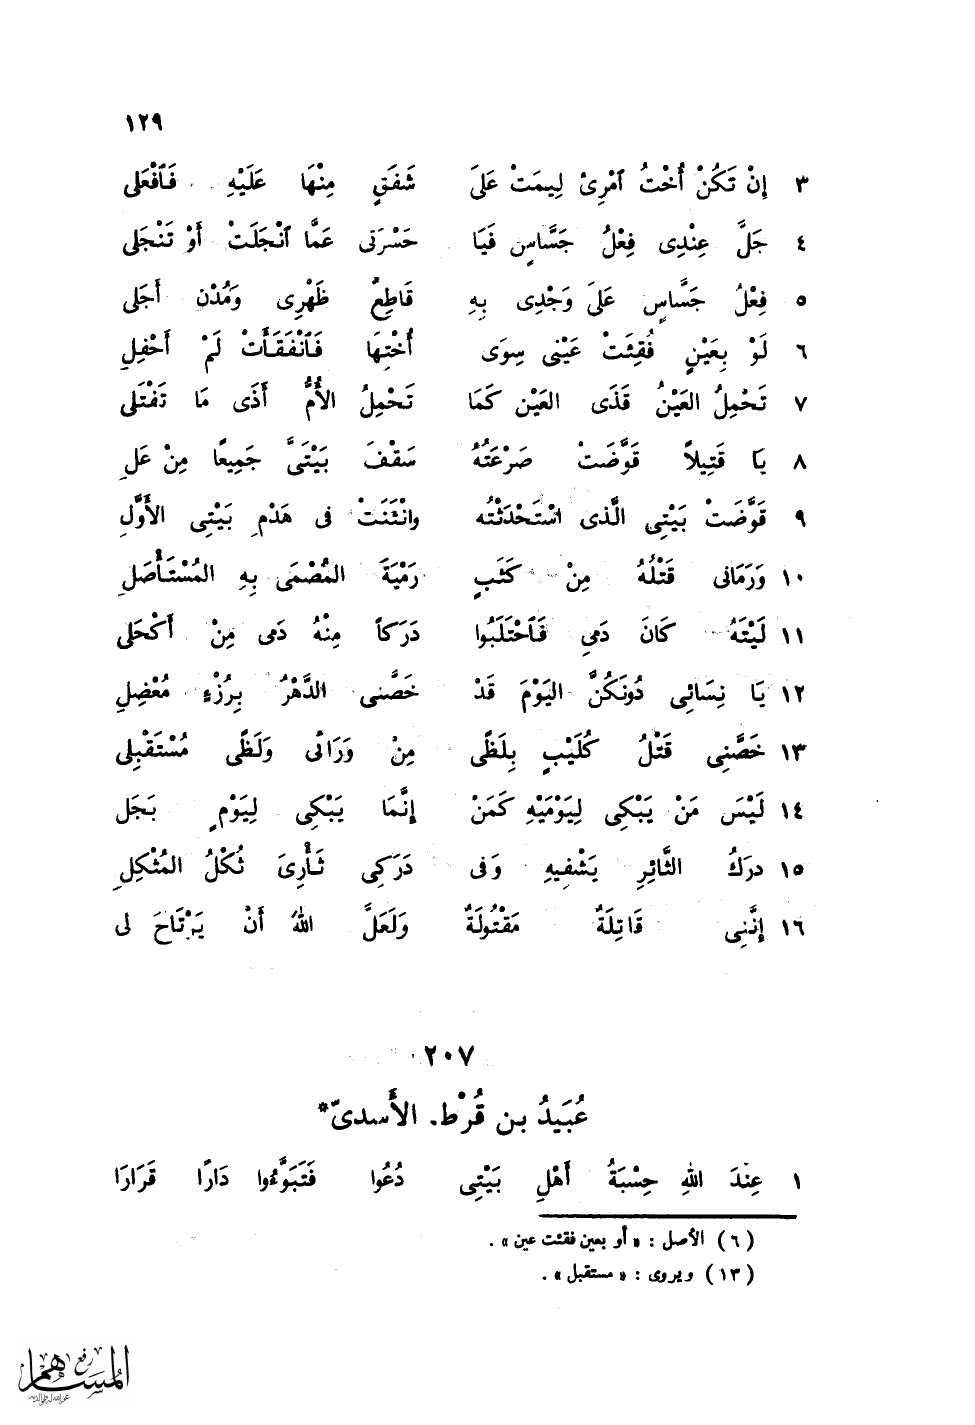 ١٢٩
٣ إِنْ تَكُنْ أُخْتُ ٱمْرِىْ لِيمَتْ عَلَى شَفَقٍ مِنْهَا عَلَيْهِ فَٱفْعَلى
٤ جَلَّ عِنْدِى فِعْلُ جَسَّاسٍ فَيَا حَسْرَتى عَمَّا ٱنْجَلَتْ أَوْ تَنْجَلى
٥ فِعْلُ جَسَّاسٍ عَلَى وَجْدِى بِهِ قَاطِعٌ ظَهْرِى وَمُدْنٍ أَجَلى
٦ لَوْ بِعَيْنٍ فُقِئَتْ عَيْنى سِوَى أُخْتِهَا فَٱنْفَقَأَتْ لَمْ أَحْفِلِ
٧ تَحْمِلُ العَيْنُ قَذَى العَيْنِ كَمَا تَحْمِلُ الأُمُّ أَذَى مَا تَفْتَلى
٨ يَا قَتِيلاً قَوَّضَتْ صَرْعَتُهُ سَقْفَ بَيْتَىَّ جَمِيعًا مِنْ عَلِ
٩ قَوَّضَتْ بَيْتِى الَّذى اسْتَحْدَثْتُه وانْثَنَتْ فى هَدْمِ بَيْتِى الأَوَّلِ
١٠ وَرَمَانى قَتْلُهُ مِنْ كَثَبٍ رَمْيَةَ المُصْمَى بِهِ المُسْتَأْصَلِ
١١ لَيْتَهُ كَانَ دَمِى فَٱحْتَلَبُوا دَرَكاً مِنْهُ دَمى مِنْ أَكْحَلى
١٢ يَا نِسَائِى دُونَكُنَّ اليَوْمَ قَدْ خَصَّنى الدَّهْرُ بِرُزْءٍ مُعْضِلِ
١٣ خَصَّنِى قَتْلُ كُلَيْبٍ بِلَظًى مِنْ وَرَائى وَلَظًى مُسْتَقْبِلى
١٤ لَيْسَ مَنْ يَبْكِى لِيَوْمَيْهِ كَمَنْ إِنَّمَا يَبْكِى لِيَوْمٍ بَجَل
١٥ درَكُ الثَّائِرِ يَشْفِيهِ وَفى دَرَكِى ثَأْرِىَ ثُكْلُ المُثْكِلِ
١٦ إِنَّنِى قَاتِلَةٌ مَقْتُولَةٌ وَلَعَلَّ اللهَ أَنْ يَرْتَاحَ لى
٢٠٧
عُبَيدُ بن قُرْط. الأَسدىّ*
١ عِنْدَ اللهِ حِسْبَةُ أَهْلِ بَيْتِى دُعُوا فَتَبَوَّءُوا دَارًا قَرَارَا
(٦) الأصل : «أو بعين فقئت عين» .
(١٣) ويروى : «مستقبل» .
رفع
المساهم